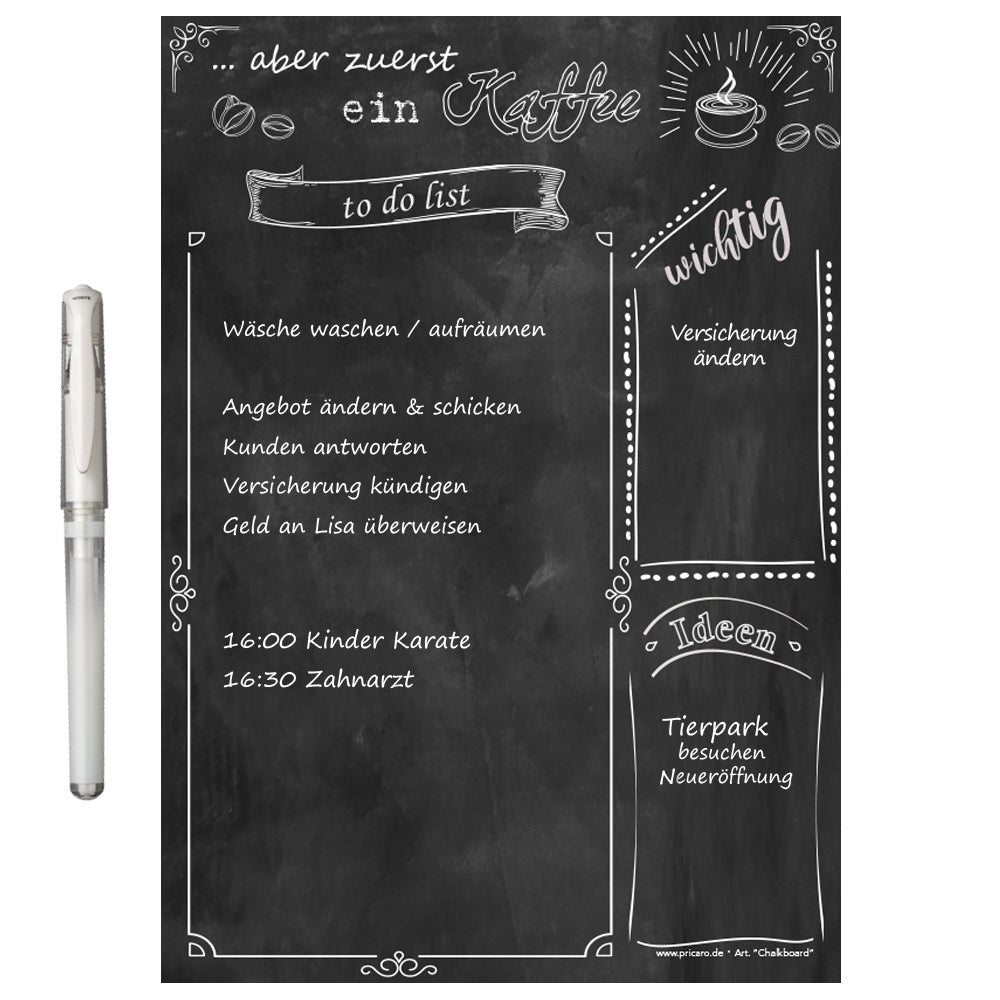 ... aber zuerst
ein Kaffee
to do list
Wäsche waschen / aufräumen
Angebot ändern & schicken
Kunden antworten
Versicherung kündigen
Geld an Lisa überweisen
16:00 Kinder Karate
16:30 Zahnarzt
wichtig
Versicherung
ändern
Ideen
Tierpark
besuchen
Neueröffnung
www.pricaro.de * Art. "Chalkboard"